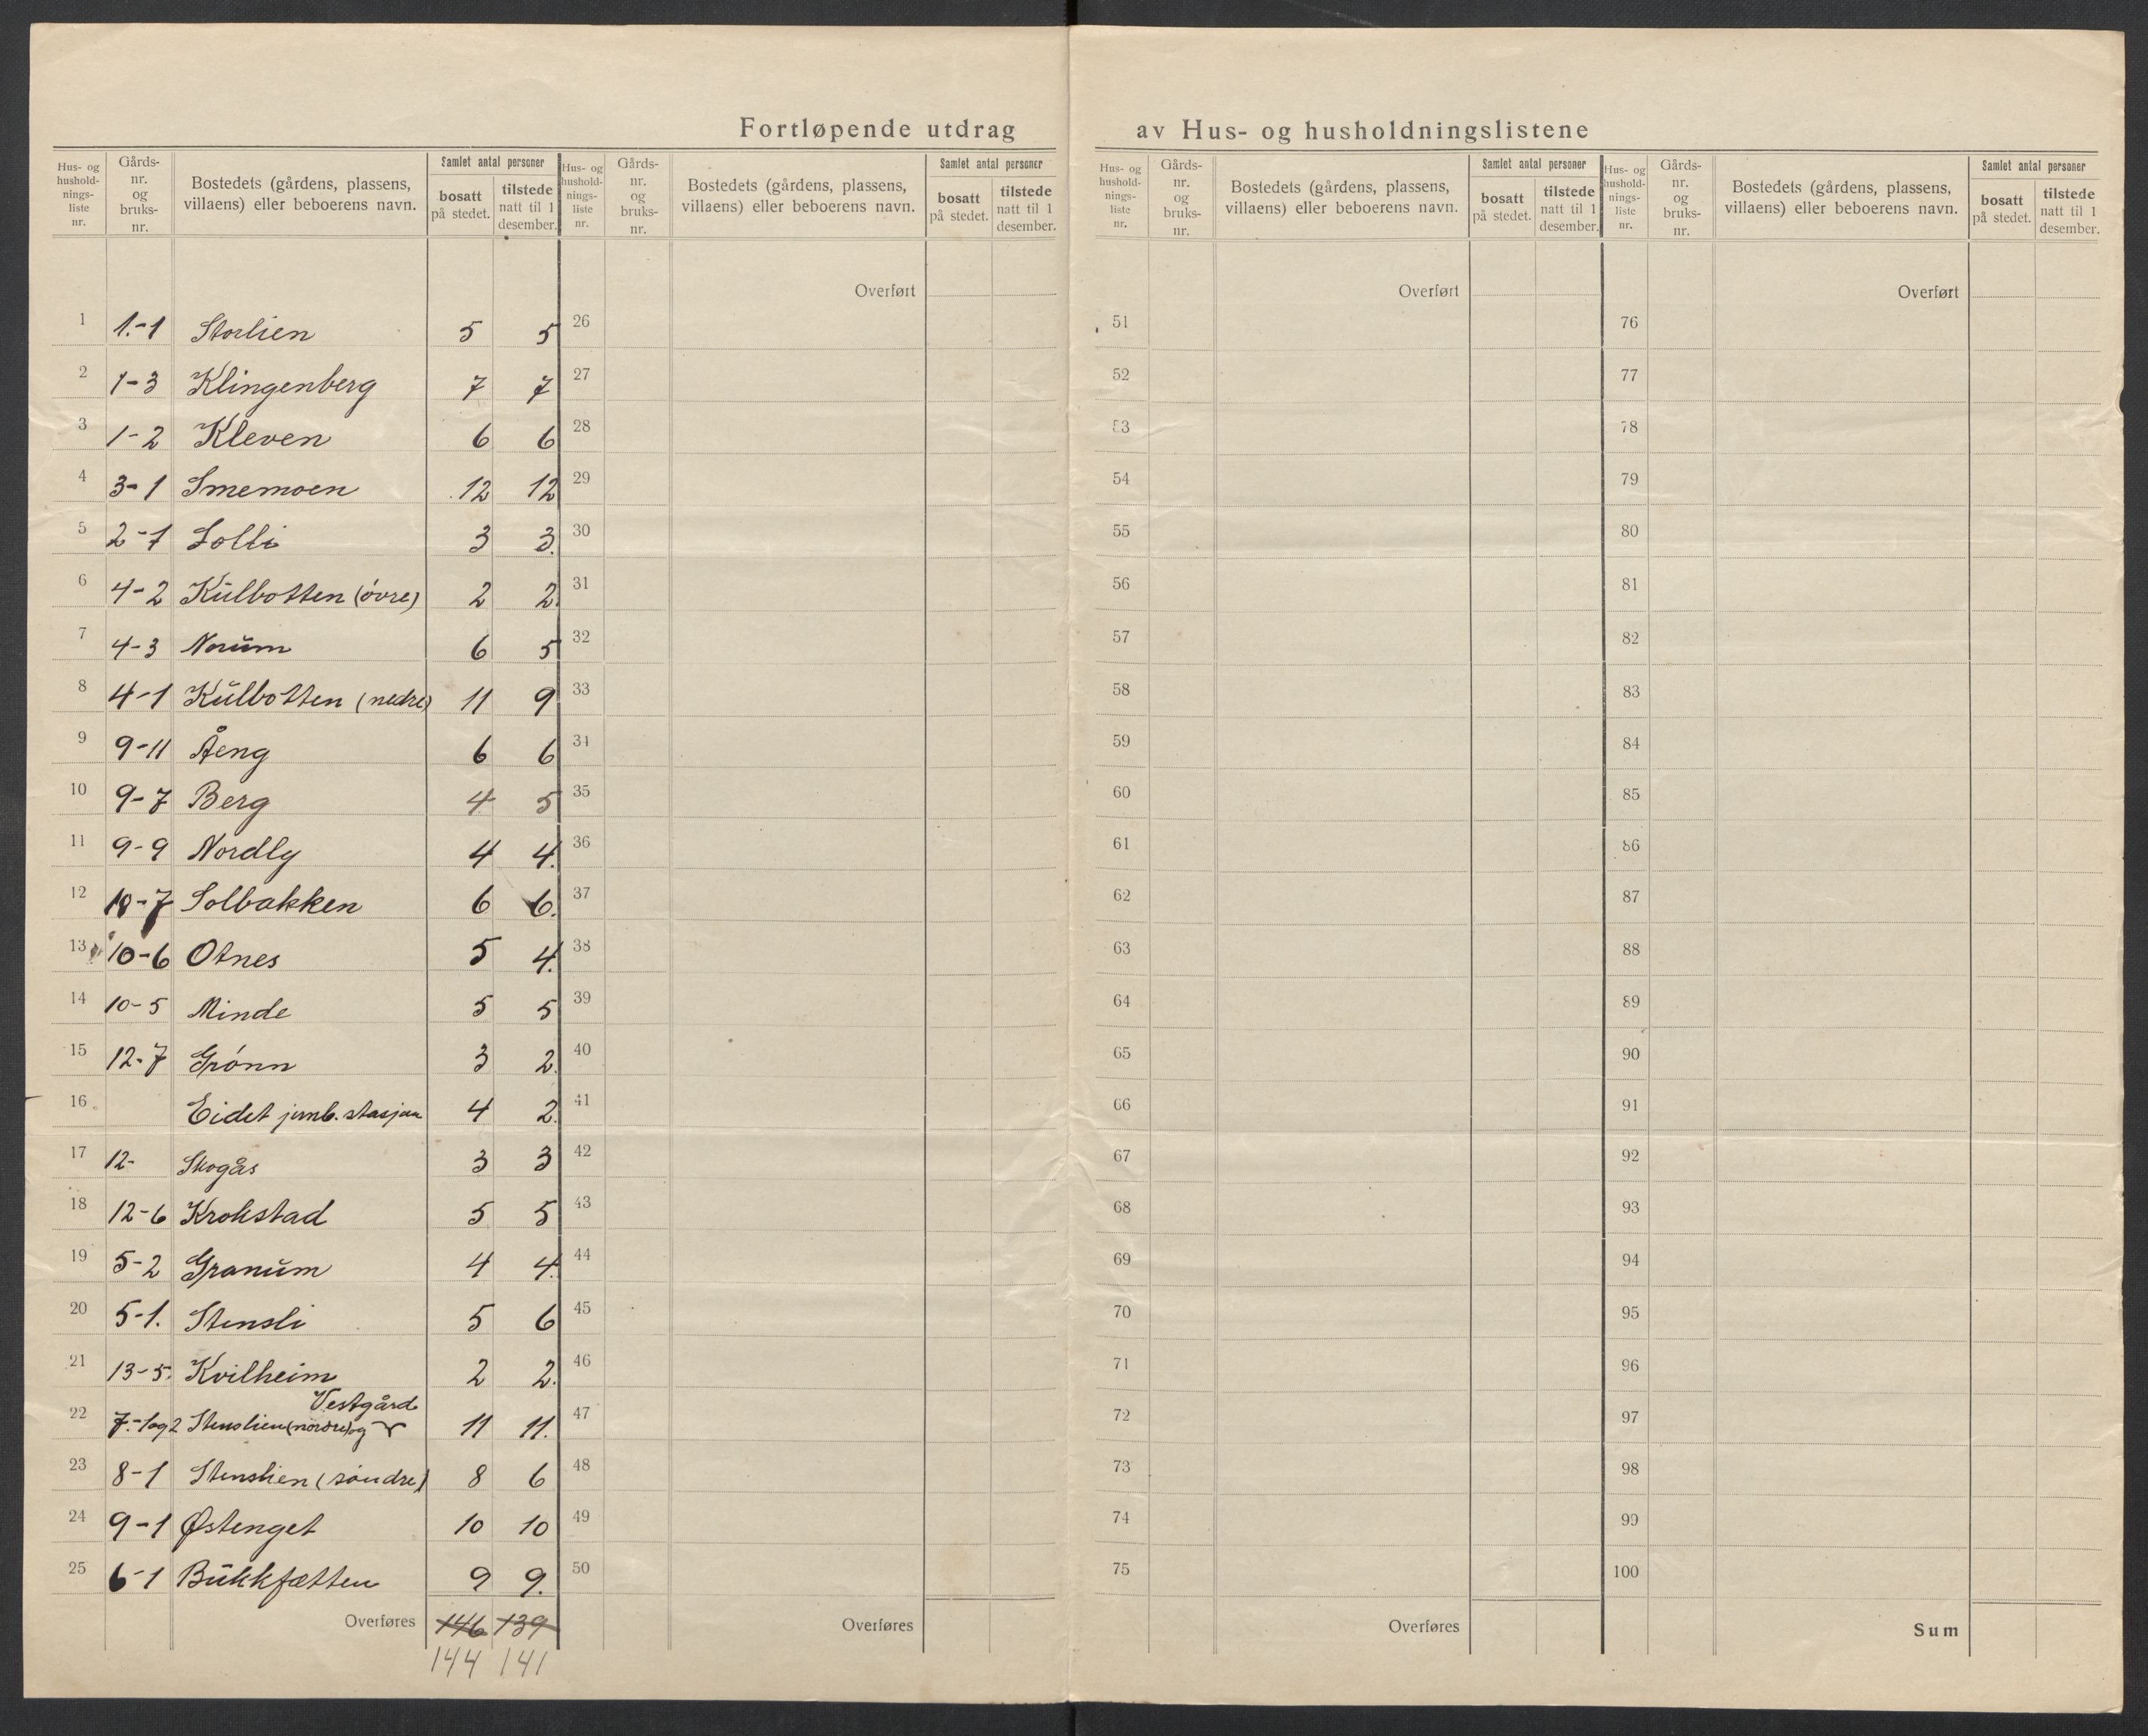 Fortløpende utdrag av Hus- og husholdningslistene
Hus- og hushold-nings-liste nr. Gårds-nr. og bruks-nr. Bostedets (gårdens, plassens, villaens) eller beboerens navn. Samlet antal personer bosatt på stedet. tilstede natt til 1 desember.
Hus- og hushold-nings-liste nr. Gårds-nr. og bruks-nr. Bostedets (gårdens, plassens, villaens) eller beboerens navn. Samlet antal personer bosatt på stedet. tilstede natt til 1 desember.
Hus- og hushold-nings-liste nr. Gårds-nr. og bruks-nr. Bostedets (gårdens, plassens, villaens) eller beboerens navn. Samlet antal personer bosatt på stedet. tilstede natt til 1 desember.
Hus- og hushold-nings-liste nr. Gårds-nr. og bruks-nr. Bostedets (gårdens, plassens, villaens) eller beboerens navn. Samlet antal personer bosatt på stedet. tilstede natt til 1 desember.
Overført Overført Overført
1 1.-1 Storlien 5 5 26 51 76
2 1-3 Klingenberg 7 7 27 52 77
3 1-2 Kleven 6 6 28 53 78
4 3-1 Smemoen 12 12 29 54 79
5 2-1 Solli 3 3. 30 55 80
6 4-2 Kŭlbotten (óvre) 2 2. 31 56 81
7 4-3 Norŭm 6 5 32 57 82
8 4-1 Kŭlbotten (nedre) 11 9 33 58 83
9 9-11 Åeng 6 6 34 59 84
10 9-7 Berg 4 5 35 60 85
11 9-9 Nordly 4 4. 36 61 86
12 10-7 Solbakken 6 6. 37 62 87
13 10-6 Otnes 5 4. 38 63 88
14 10-5 Minde 5 5 39 64 89
15 12-7 Grónn 3 2. 40 65 90
16 Eidet jernb. stasjon 4 2. 41 66 91
17 12- Skogås 3 3 42 67 92
18 12-6 Krokstad 5 5 43 68 93
19 5-2 Granŭm 4 4. 44 69 94
20 5-1. Stensli 5 6 45 70 95
21 13-5. Kvilheim 2 2. 46 71 96
Vestgård
22 7.-1og2 Stenslien (nordre) og 11 11. 47 72 97
23 8-1 Stenslien (sóndre) 8 6 48 73 98
24 9-1 Østenget 10 10 49 74 99
25 6-1 Bŭkkfætten 9 9. 50 75 100
Overføres 146 139 Overføres Overføres Sum
144 141